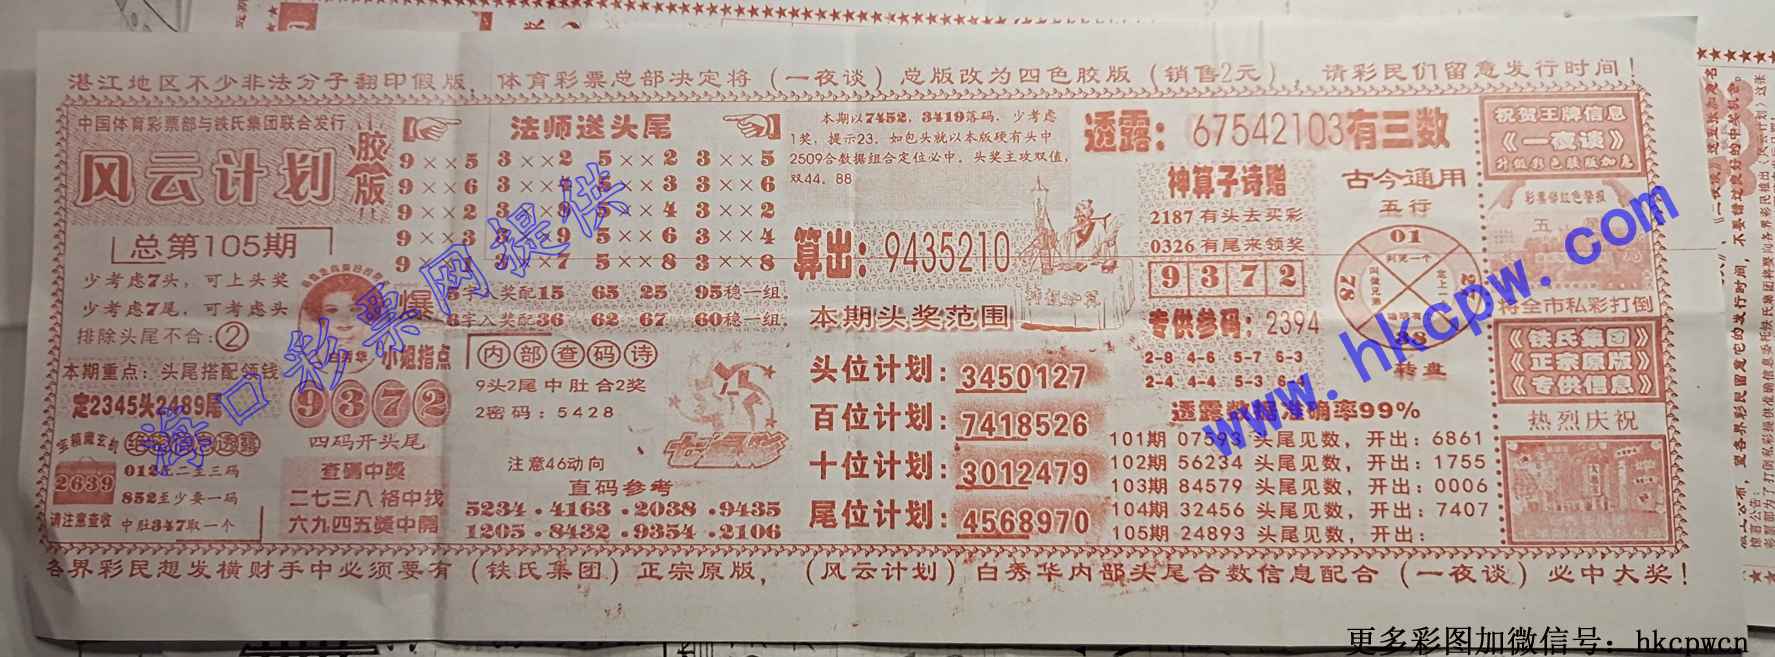 湛江地区不少非法分子翻印假版，体育彩票总部决定将（一夜谈）总版改为四色胶版（销售2元），请彩民们留意发行时间！
中国体育彩票部与铁氏集团联合发行
风云计划
胶版
总第105期
少考虑7头，可上头奖
少考虑7尾，可考虑头
排除头尾不合：②
本期重点：头尾搭配领钱
定2345头2489尾
2639
852至少要一码
请注意查收
中肚347取一个
小姐指点
9372
四码开头尾
查码中奖
二七三八格中找
六九四五奖中開
法师送头尾
9××5 3××2 5××2 3××5
9××6 3××4 5××3 3××6
9××2 3××8 5××4 3××2
9××3 3××9 5××6 3××4
3××7 5××8 3××8
5字入奖配15 65 25 95稳一组。
8字入奖配36 62 67 60稳一组。
内部查码诗
9头2尾中肚合2奖
2密码：5428
注意46动向
直码参考
5234.4163.2038.9435
1205.8432.9354.2106
本期以7452，3419落码，少考虑
1奖，提示23，如包头就以本版硬有头中
2509合数据组合定位必中，头奖主攻双值，
双44，88
算出：9435210
本期头奖范围
头位计划：3450127
百位计划：7418526
十位计划：3012479
尾位计划：4568970
透露：67542103有三数
神算子诗赠
2187有头去买彩
0326有尾来领奖
9372
专供参码：2394
2-8 4-6 5-7 6-3
2-4 4-4 5-3 6-4
古今通用
五行
01
78
转盘
透露数据准确率99%
101期 07593 头尾见数，开出：6861
102期 56234 头尾见数，开出：1755
103期 84579 头尾见数，开出：0006
104期 32456 头尾见数，开出：7407
105期 24893 头尾见数，开出：
祝贺王牌信息
《一夜谈》
升级彩色胶版加急
将全市私彩打倒
《铁氏集团》
《正宗原版》
《专供信息》
热烈庆祝
各界彩民想发横财手中必须要有（铁氏集团）正宗原版，（风云计划）白秀华内部头尾合数信息配合（一夜谈）必中大奖！
海口彩票网提供
www.hkcpw.com
更多彩图加微信号：hkcpwcn